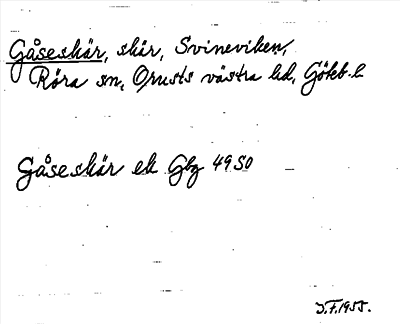 Gåseskär, skär, Svineviken,
Röra sn, Orusts västra hd, Göteb. l.
Gåseskär ek Gbg 49 SO
J.F. 1955.